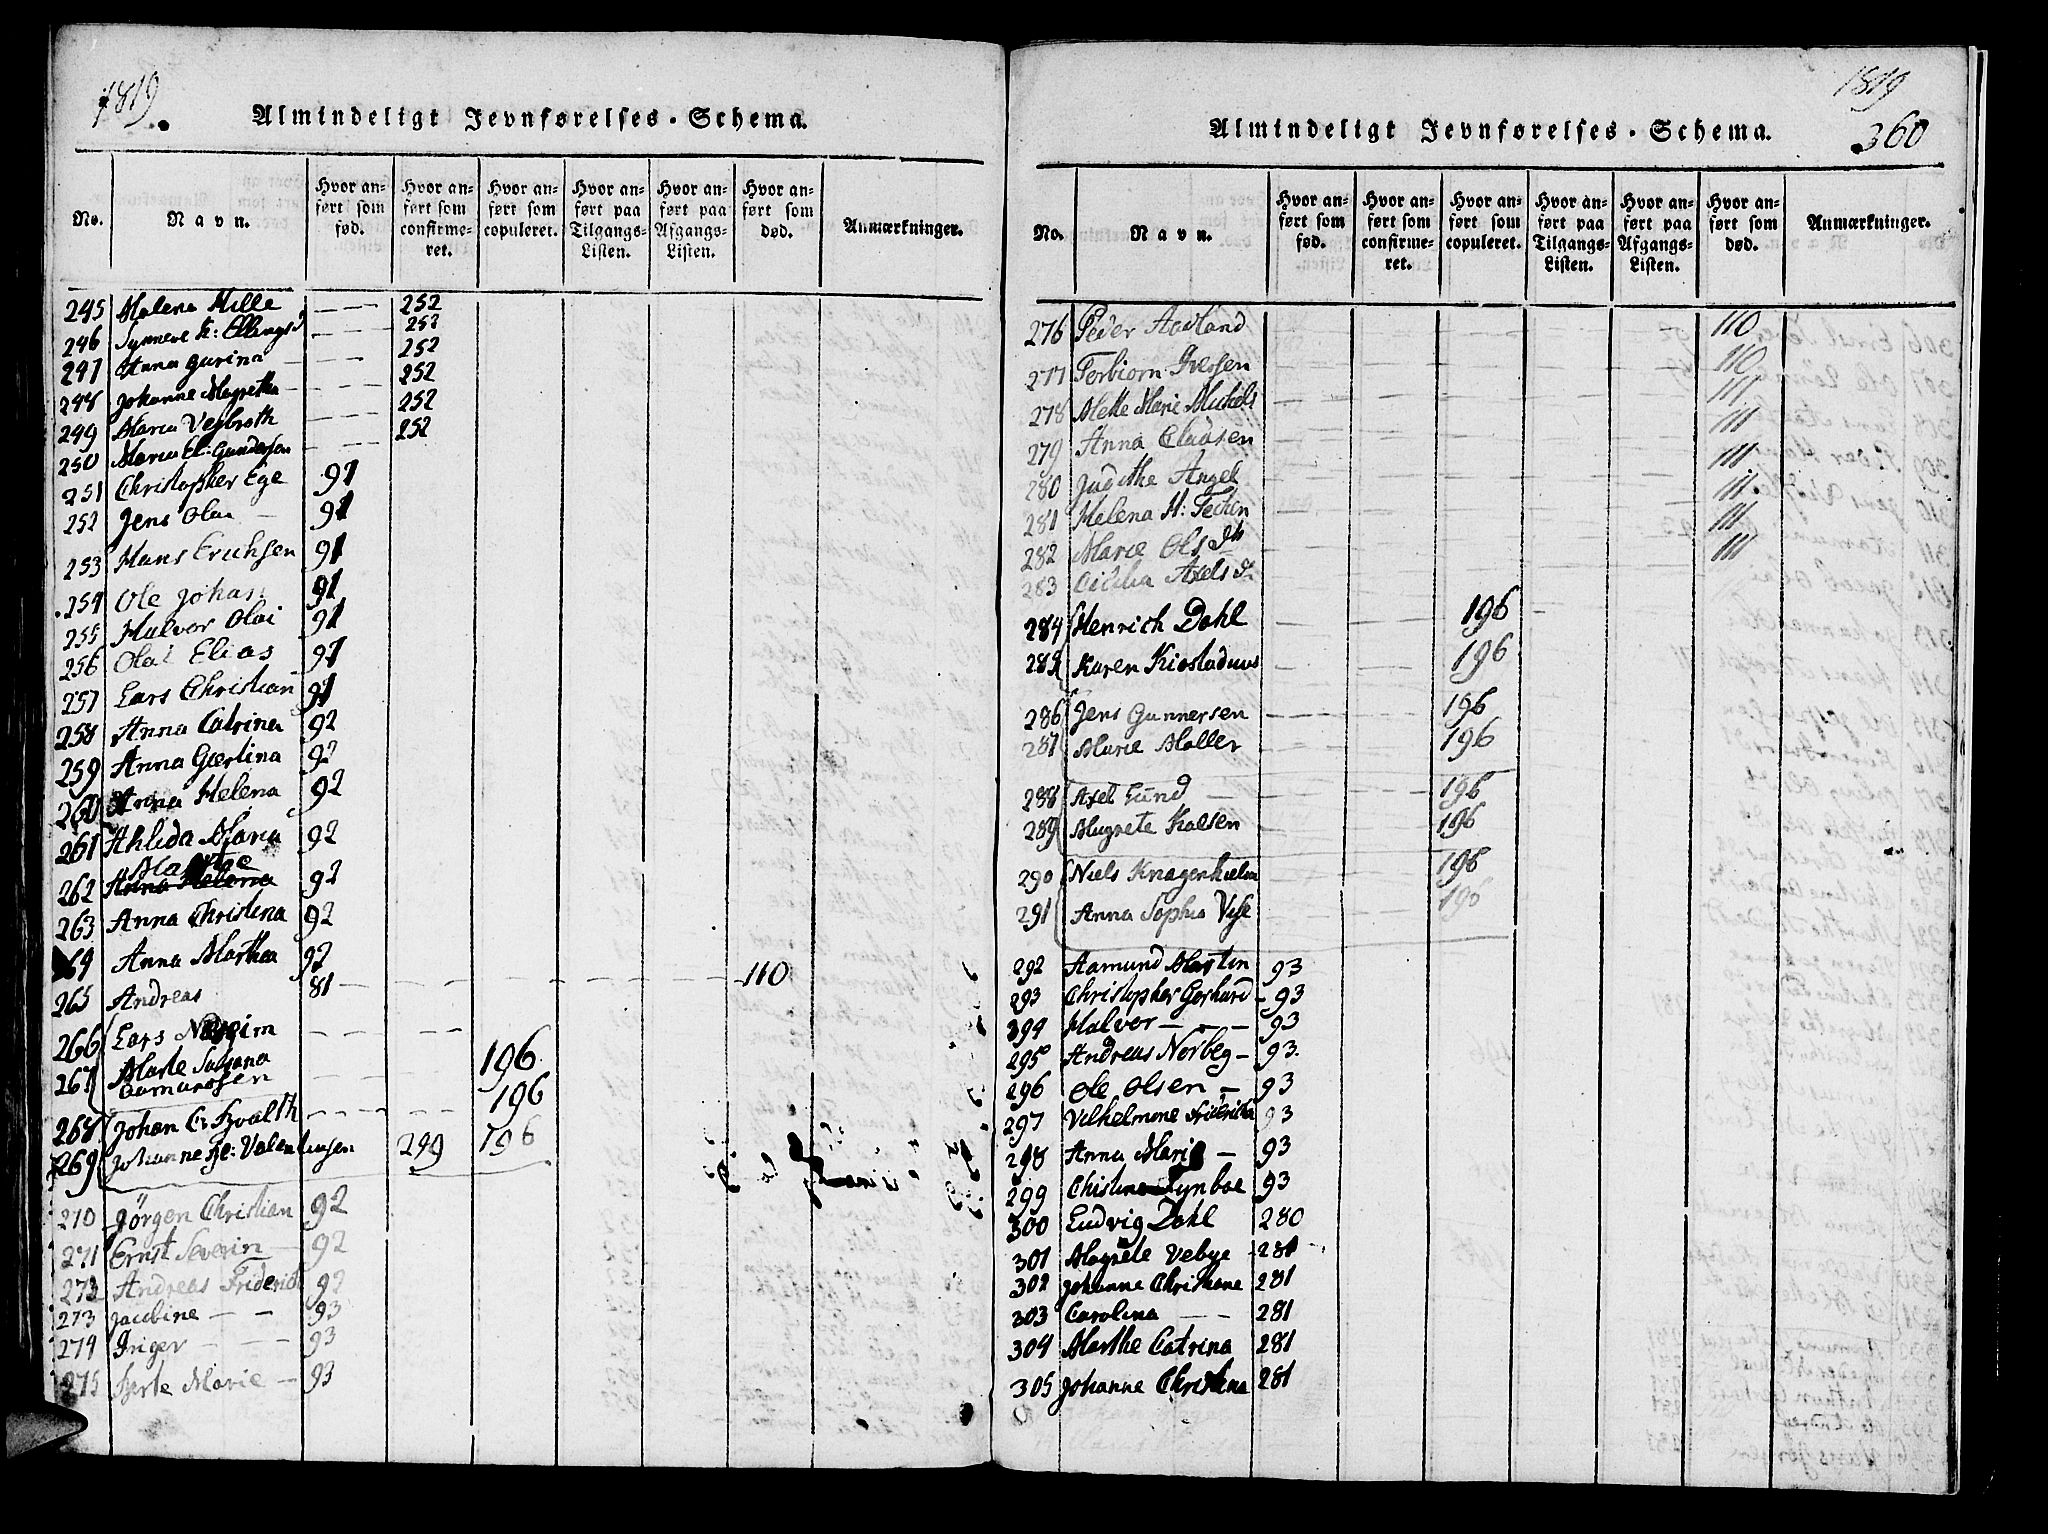 1819
Almindeligt Jevnførelses-Schema.
No. Navn. Hvor anført som fød. Hvor anført som confirmeret. Hvor anført som copuleret. Hvor anført paa Tilgangs-Listen. Hvor anført paa Afgangs-Listen. Hvor anført som død. Anmærkninger.
245 Malena Hille 252
246 Synneve K: Ellings D 252
247 Anna Gurina 252
248 Johanne Magretha 252
249 Maria Vesbroth 252
250 Maria El: Gundersen 252
251 Christopher Ege 91
252 Jens Olai 91
253 Hans Erichsen 91
254 Ole Johan 91
255 Halvor Olai 91
256 Olai Elias 91
257 Lars Christian 91
258 Anna Catrina 92
259 Anna Gjertina 92
260 Anna Helena 92
261 Ahlida Maria 92
Marthe
262 Anna Helena 92
263 Anna Christina 92
264 Anna Martha 92
265 Andreas 81 110
266 Lars Nesheim 196
267 Marte Susana Aamundsen 196
268 Johan C: Hvalth
269 Johanne Fr: Valentinsen 249 196
270 Jörgen Christian 92
271 Ernst Severin 92
272 Andreas Friderich 92
273 Jacobine 93
274 Inger 93
275 Berte Marie 93
1819
360
Almindeligt Jevnførelses-Schema.
No. Navn. Hvor anført som fød. Hvor anført som confirmeret. Hvor anført som copuleret. Hvor anført paa Tilgangs-Listen. Hvor anført paa Afgangs-Listen. Hvor anført som død. Anmærkninger.
276 Peder Aadland 110
277 Torbiorn Iversen 110
278 Mette Marie Michels 111
279 Anna Clausen 111
280 Judithe Angel 111
281 Helena H: Techen 111
282 Marie Ols Dtr 111
283 Cicilia Axels D 111
284 Henrich Dahl 196
285 Karen 196
286 Jens Gunnersen 196
287 Marie Møller 196
288 Axel Lund 196
289 Magrete Kalsen 196
290 Niels Knagenhielm 196
291 Anna Sophia Vese 196
292 Aamund Martin 93
293 Christopher Gerhard 93
294 Halver 93
295 Andreas Norbeg 93
296 Ole Olsen 93
297 Vilhelmine Fridericha 93
298 Anna Marie 93
299 Christina Lynboe 93
300 Ludvig Dahl 280
301 Magrete Vebye 281
302 Johanne Christiane 281
303 Carolina 281
304 Marthe Catrina 281
305 Johanne Christina 281